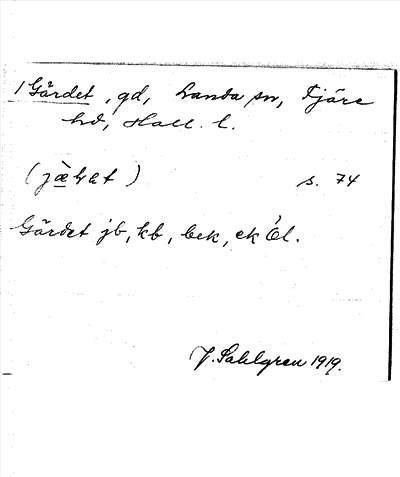 1 Gärdet, gd, Landa sn, Fjäre
hd, Hall. l.
(jæ̀Let) s. 74
Gärdet jb, kb, bek, ek Öl.
J. Sahlgren 1919.